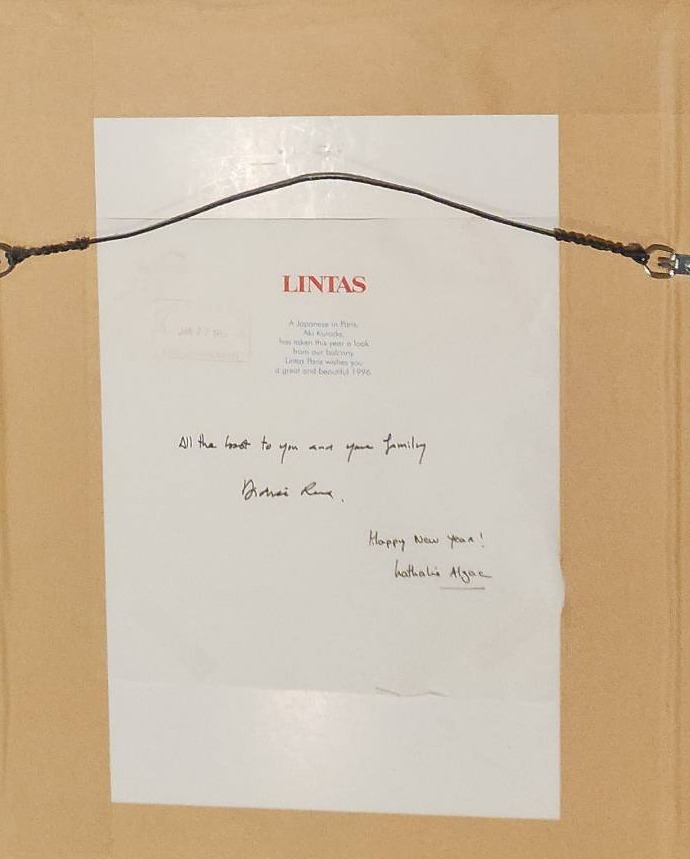 LINTAS
A Japanese in Paris,
Aki Kuroda,
has taken this year a look
from our balcony.
Lintas Paris wishes you
a great and beautiful 1996.
JAN 2
All the best to you and your family
Happy New Year!
Nathalie Algae